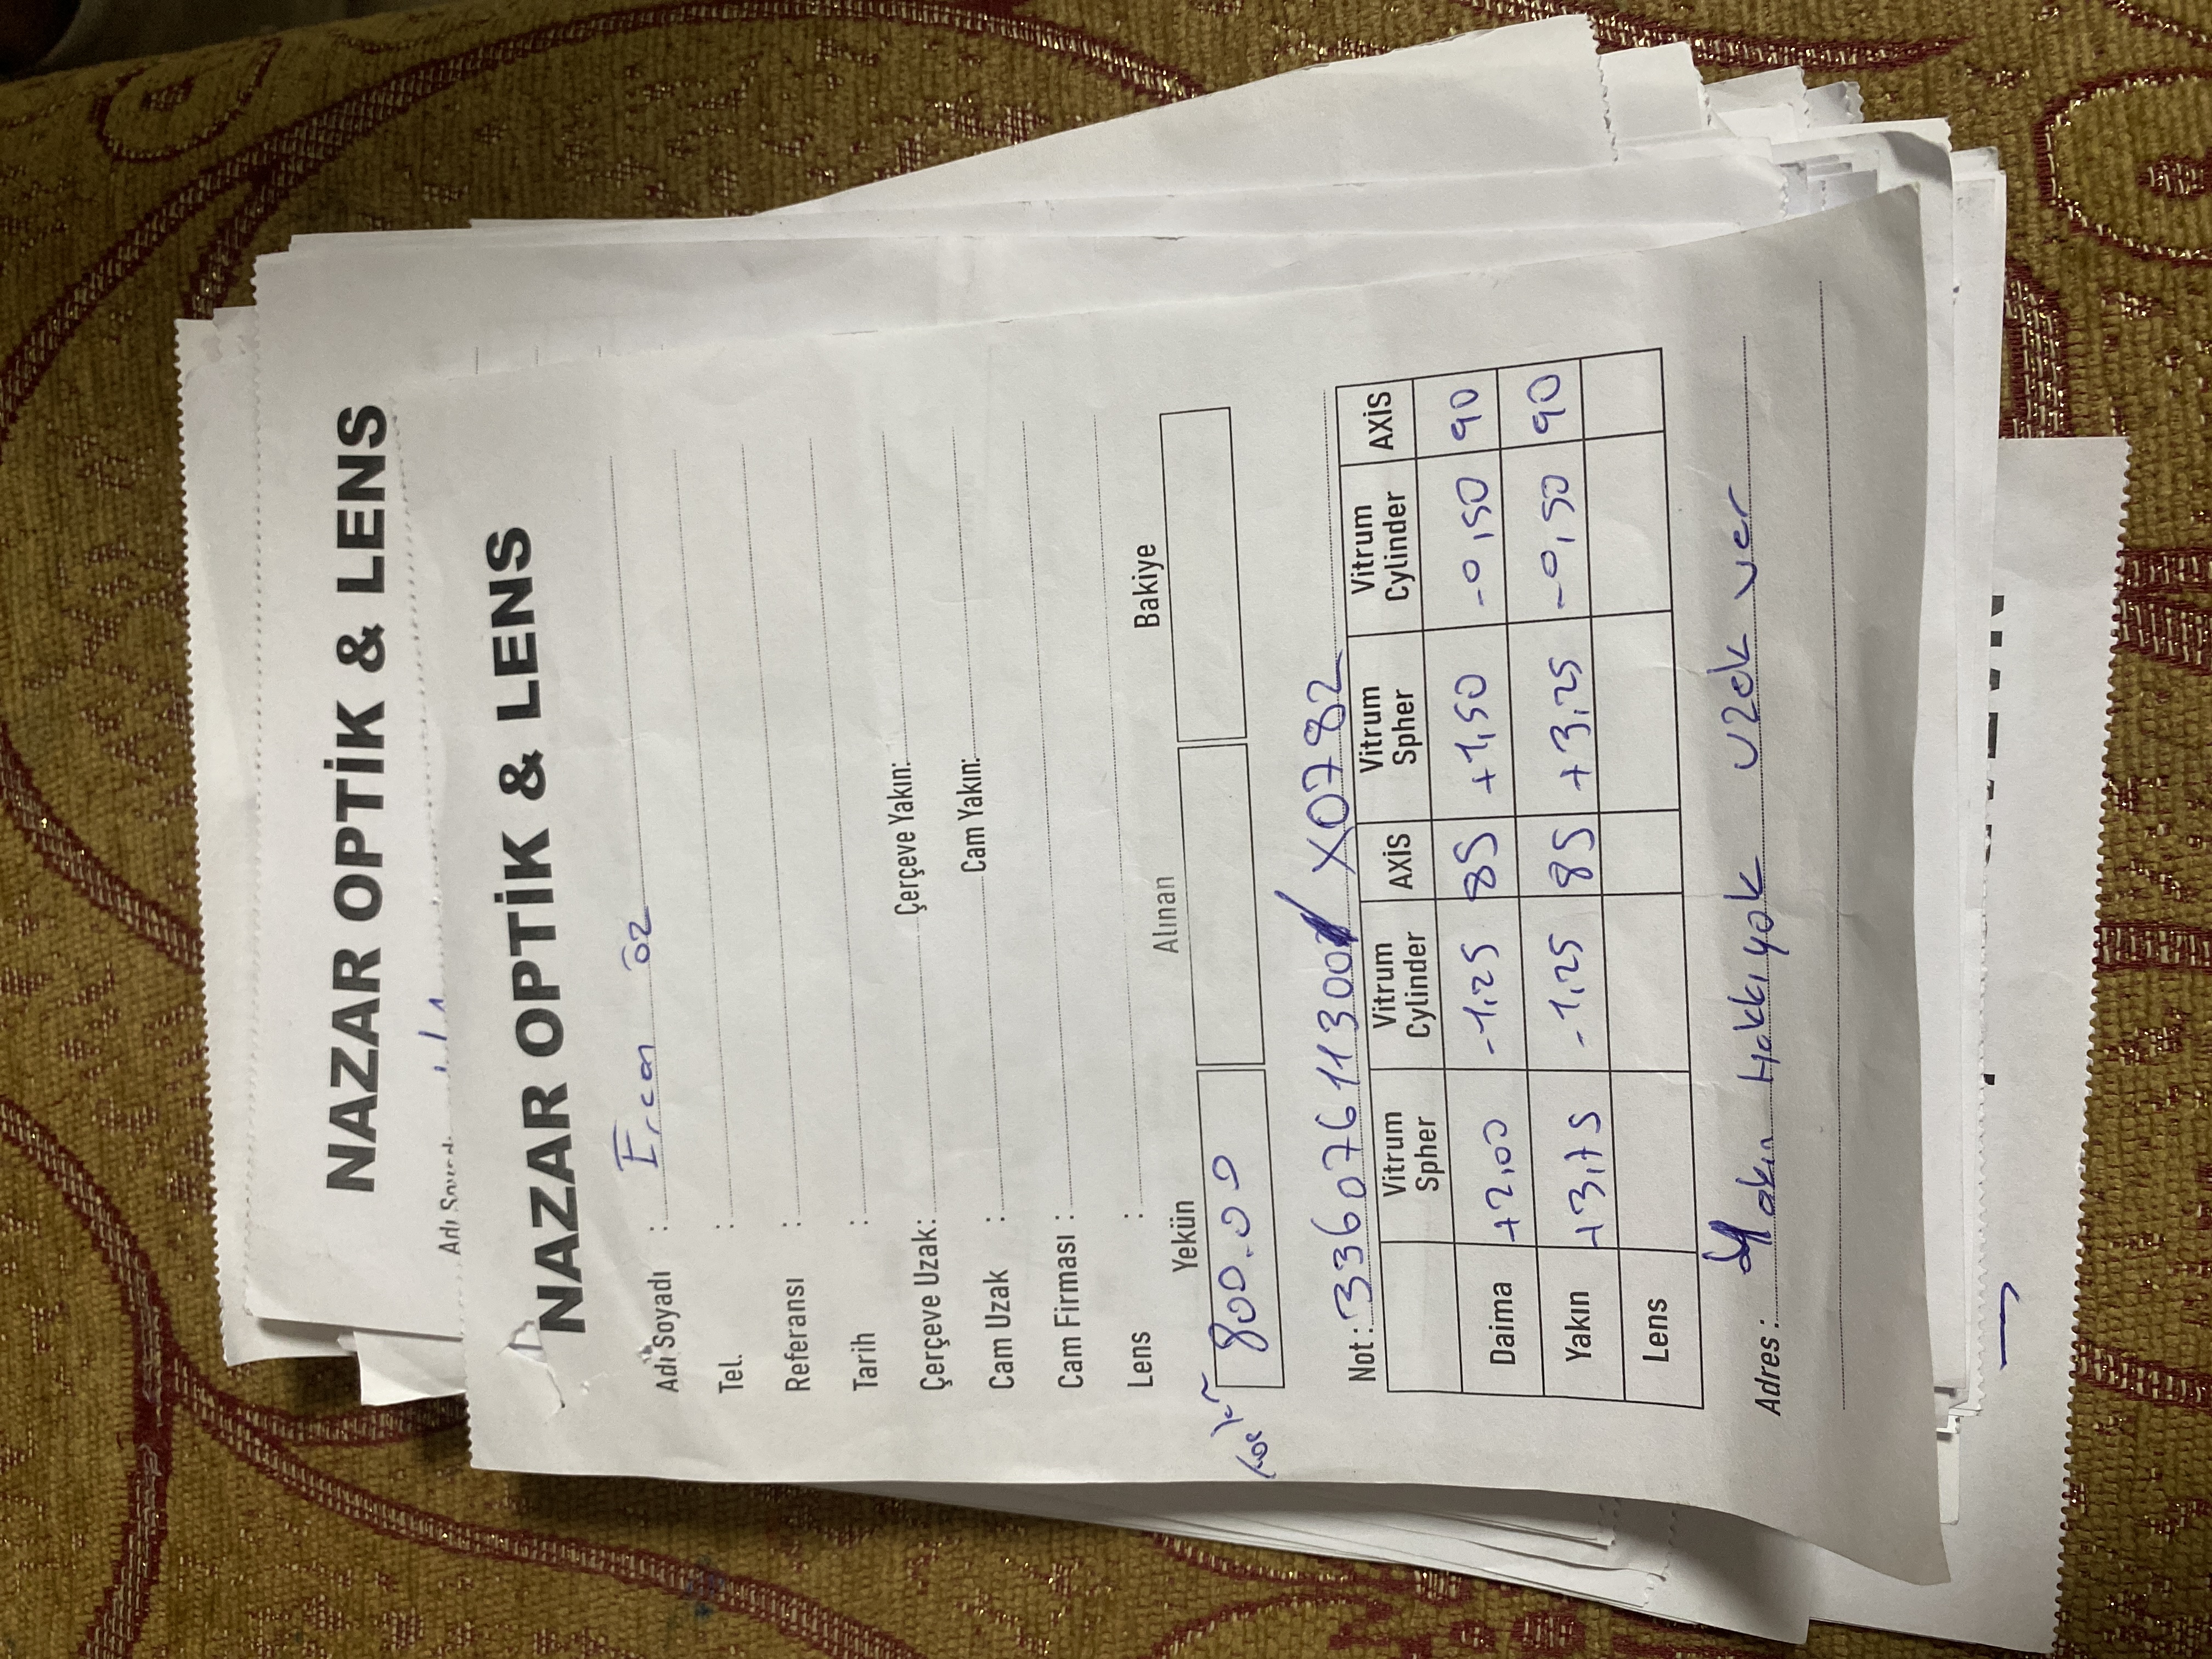 NAZAR OPTİK & LENS
Adı Soyadı
NAZAR OPTİK & LENS
Adı Soyadı : Ercan öz
Tel. :
Referansı :
Tarih :
Çerçeve Uzak: Çerçeve Yakın:
Cam Uzak : Cam Yakın:
Cam Firması :
Lens :
Yekün Alınan Bakiye
800.00
Not : 3360761130 X0782
Vitrum Spher Vitrum Cylinder AXİS Vitrum Spher Vitrum Cylinder AXİS
Daima +2,00 -1,25 85 +1,50 -0,50 90
Yakın +3,75 -1,25 85 +3,25 -0,50 90
Lens
Adres : Yakın Hakkı yok uzak ver